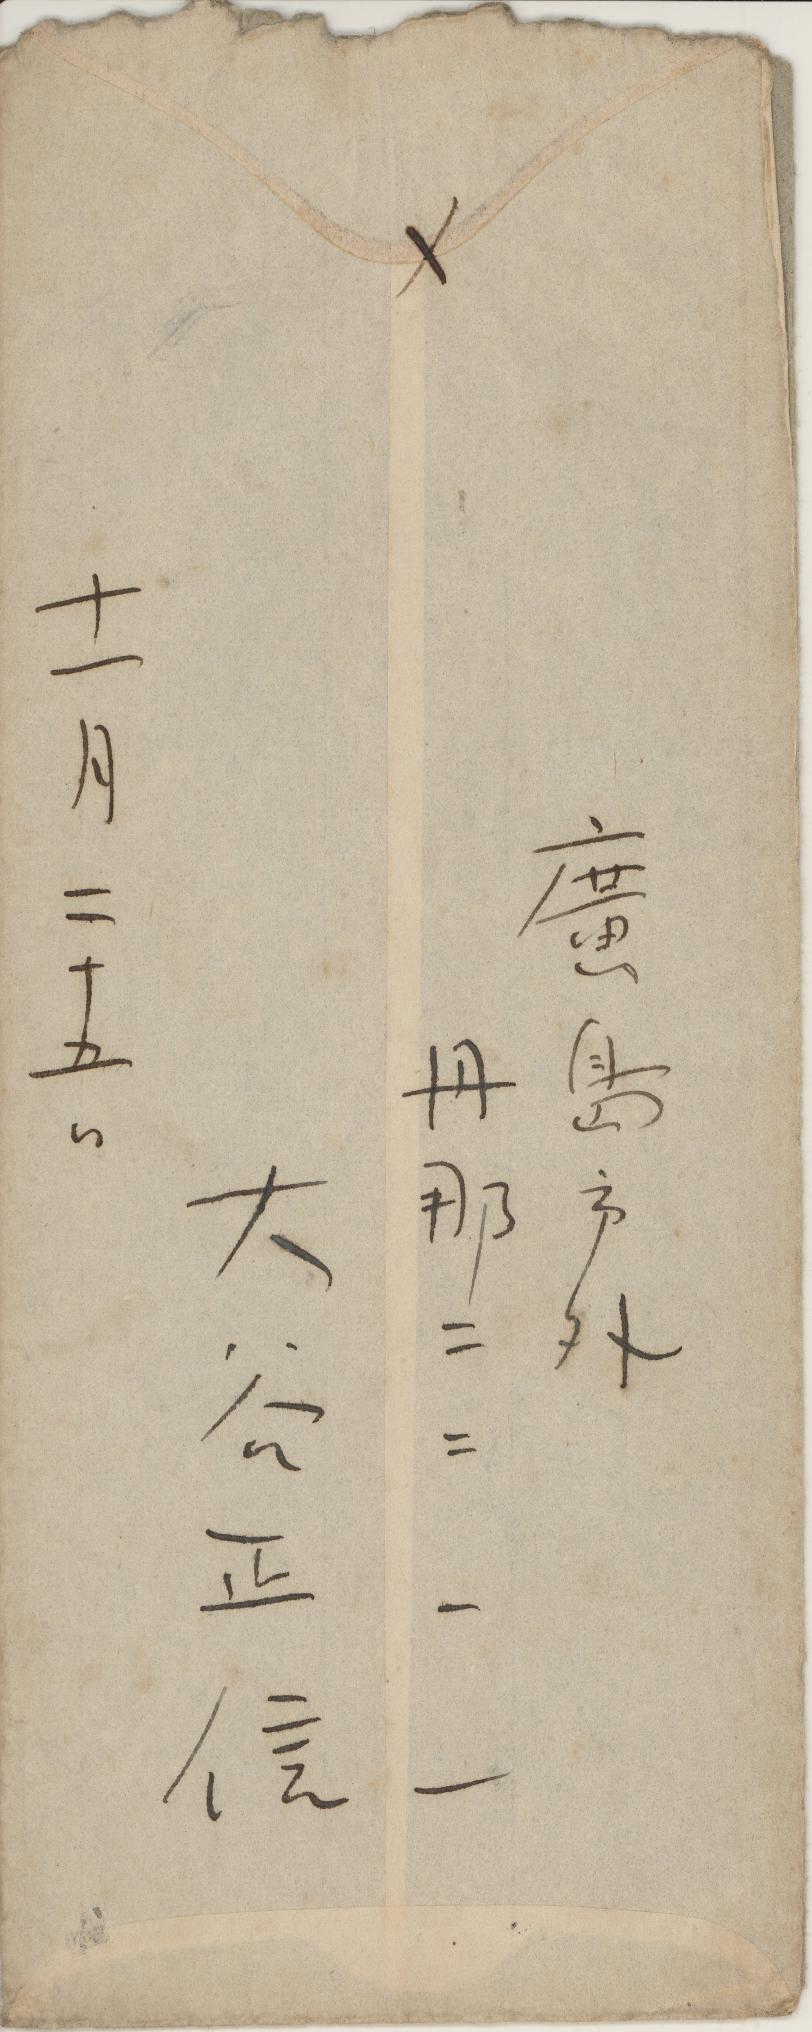 〆
廣島市外
丹那二二一一
大谷正信
十一月二十五日